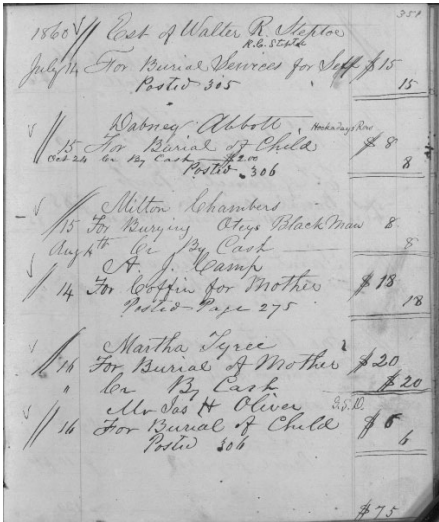 351
1860 Est of Walter R. Steptoe
R.C. Steptoe
July 14 For Burial Services for Self $15
Posted 305 15
Dabney Abbott Hookadays Row
15 For Burial of Child $8
Oct 24 Cr By Cash $2.00 8
Posted 306
Milton Chambers
15 For Burying Oteys Black Man 8
Aug 4th Cr By Cash 8
A. J. Camp
14 For Coffin for Mother $18
Posted Page 275 18
Martha Tyree
16 For Burial of Mother $20
" Cr By Cash $20
Mr Jas H Oliver
16 For Burial of Child $6
Posted 306 6
$75